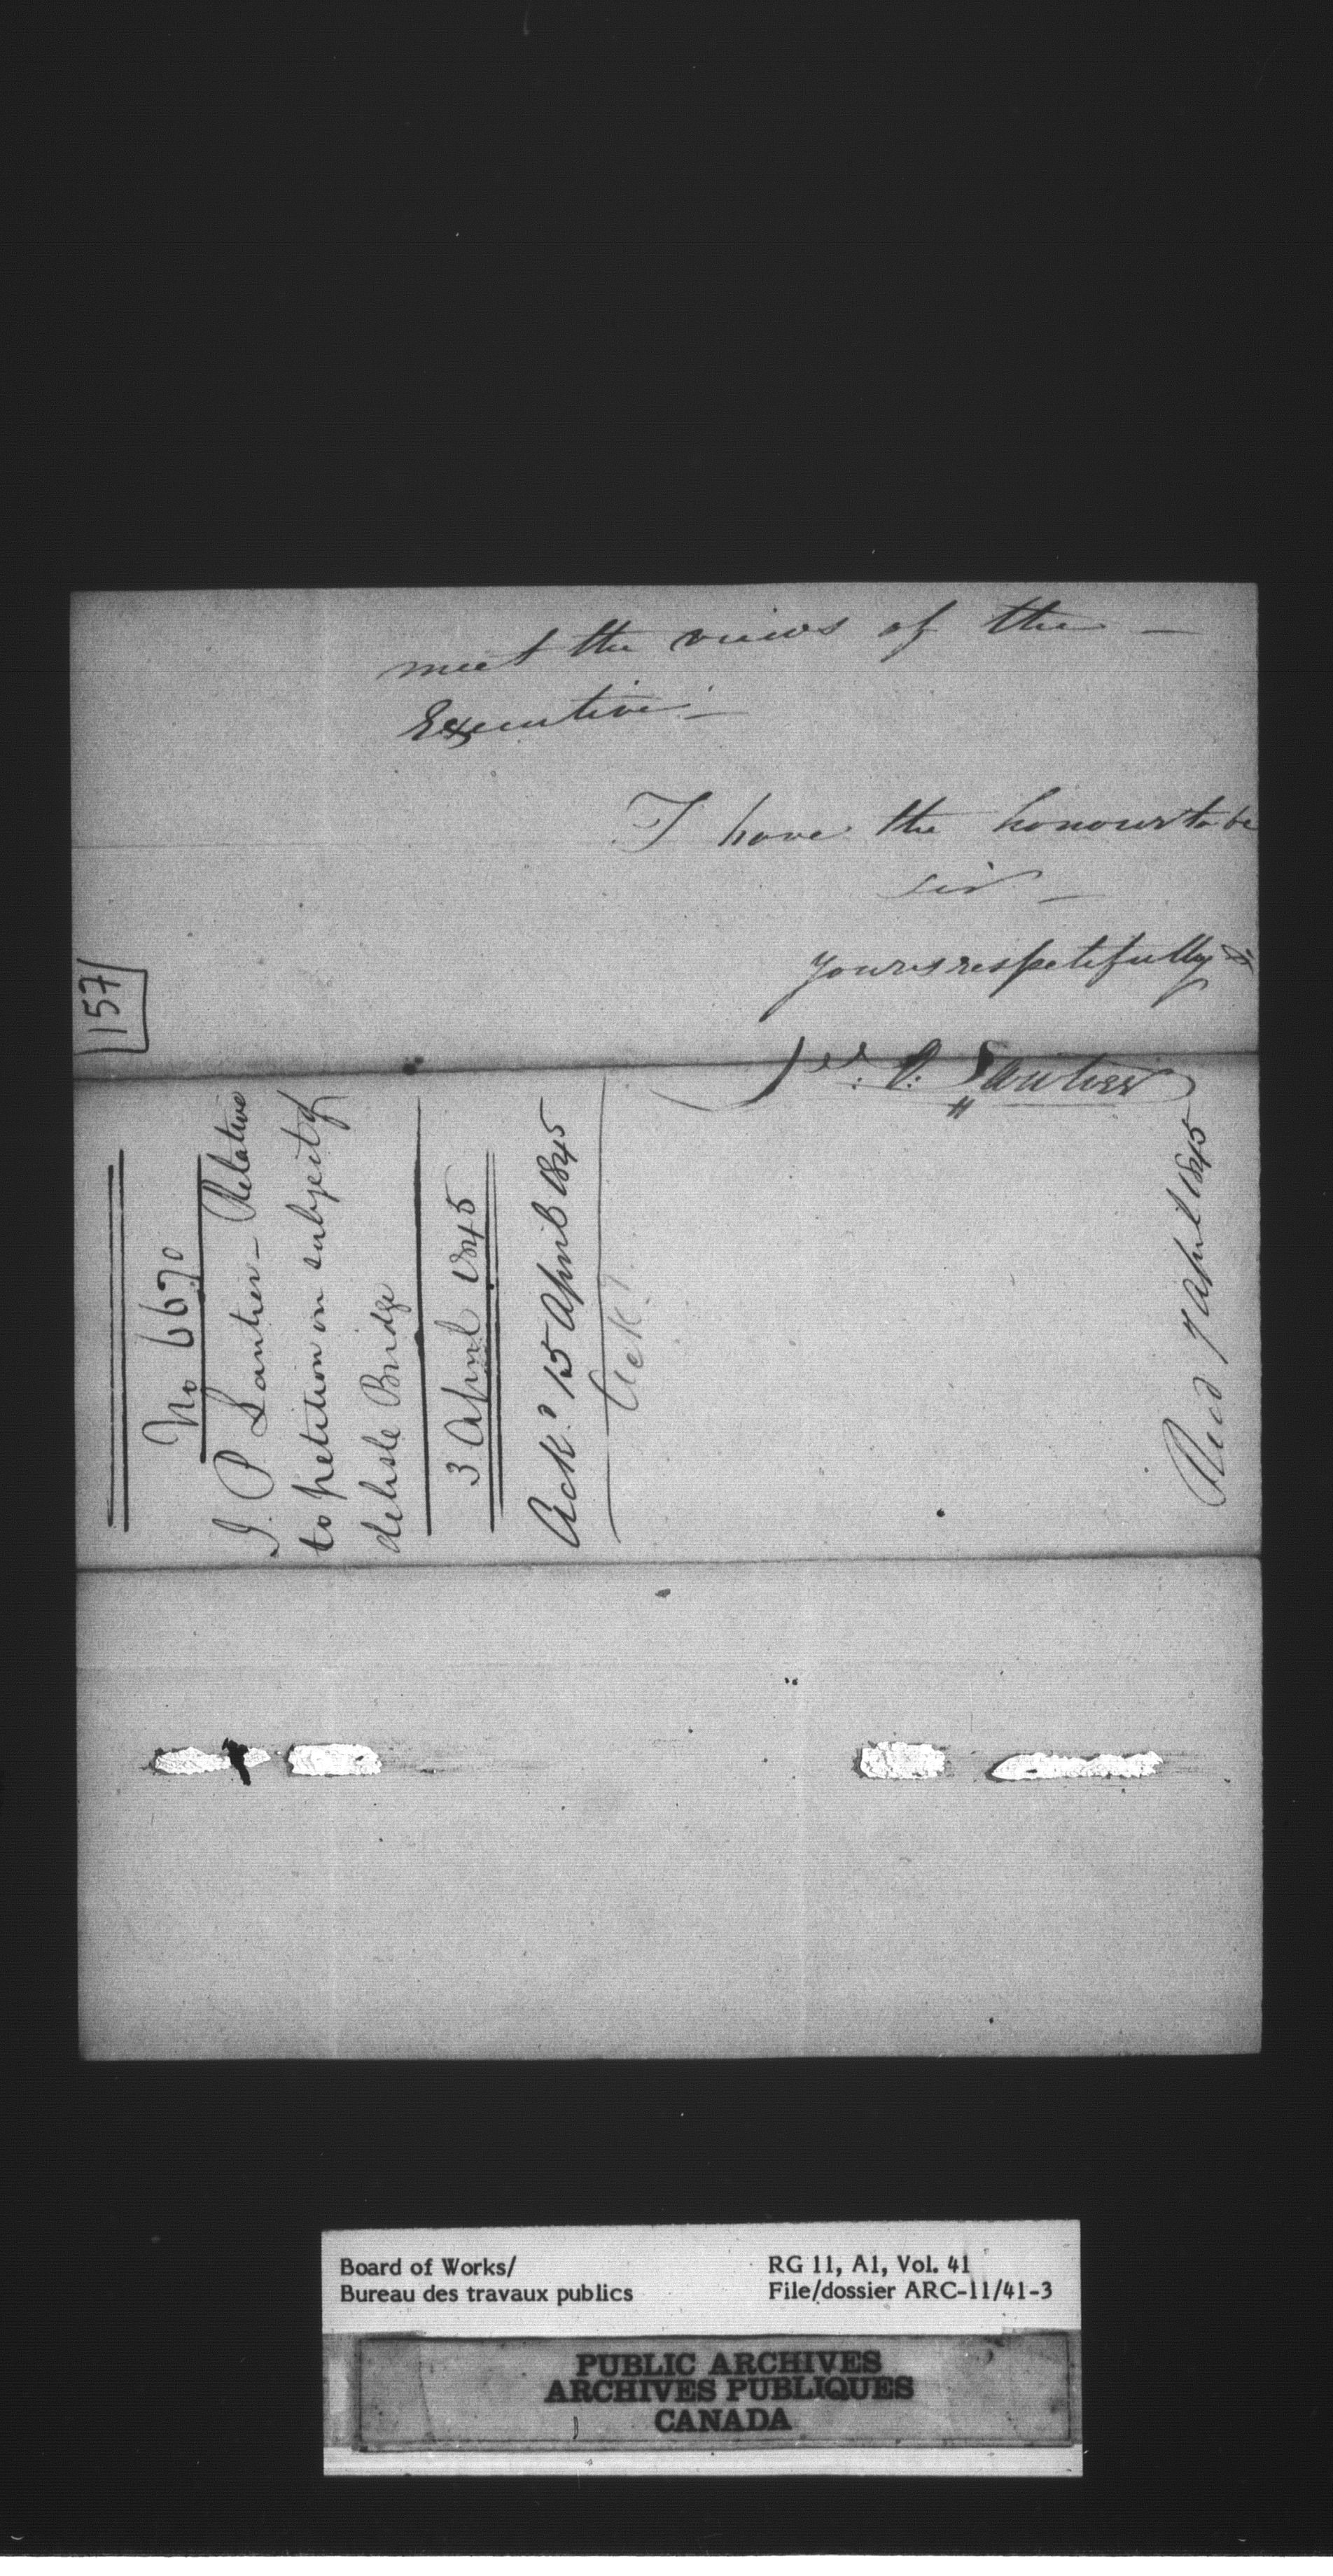 meet the views of the —
Executive. —
I have the honour to be
Sir —
yours respetifully &c
J. P. Lantier
157
No 6670
J. P Lantier - Relative
to petition on subject of
delisle Bridge
3 April 1845
Ack.d 15 April 1845
Ack.d
Recd 7 April 1845
Board of Works/
Bureau des travaux publics
RG 11, A1, Vol. 41
File/dossier ARC-11/41-3
PUBLIC ARCHIVES
ARCHIVES PUBLIQUES
CANADA